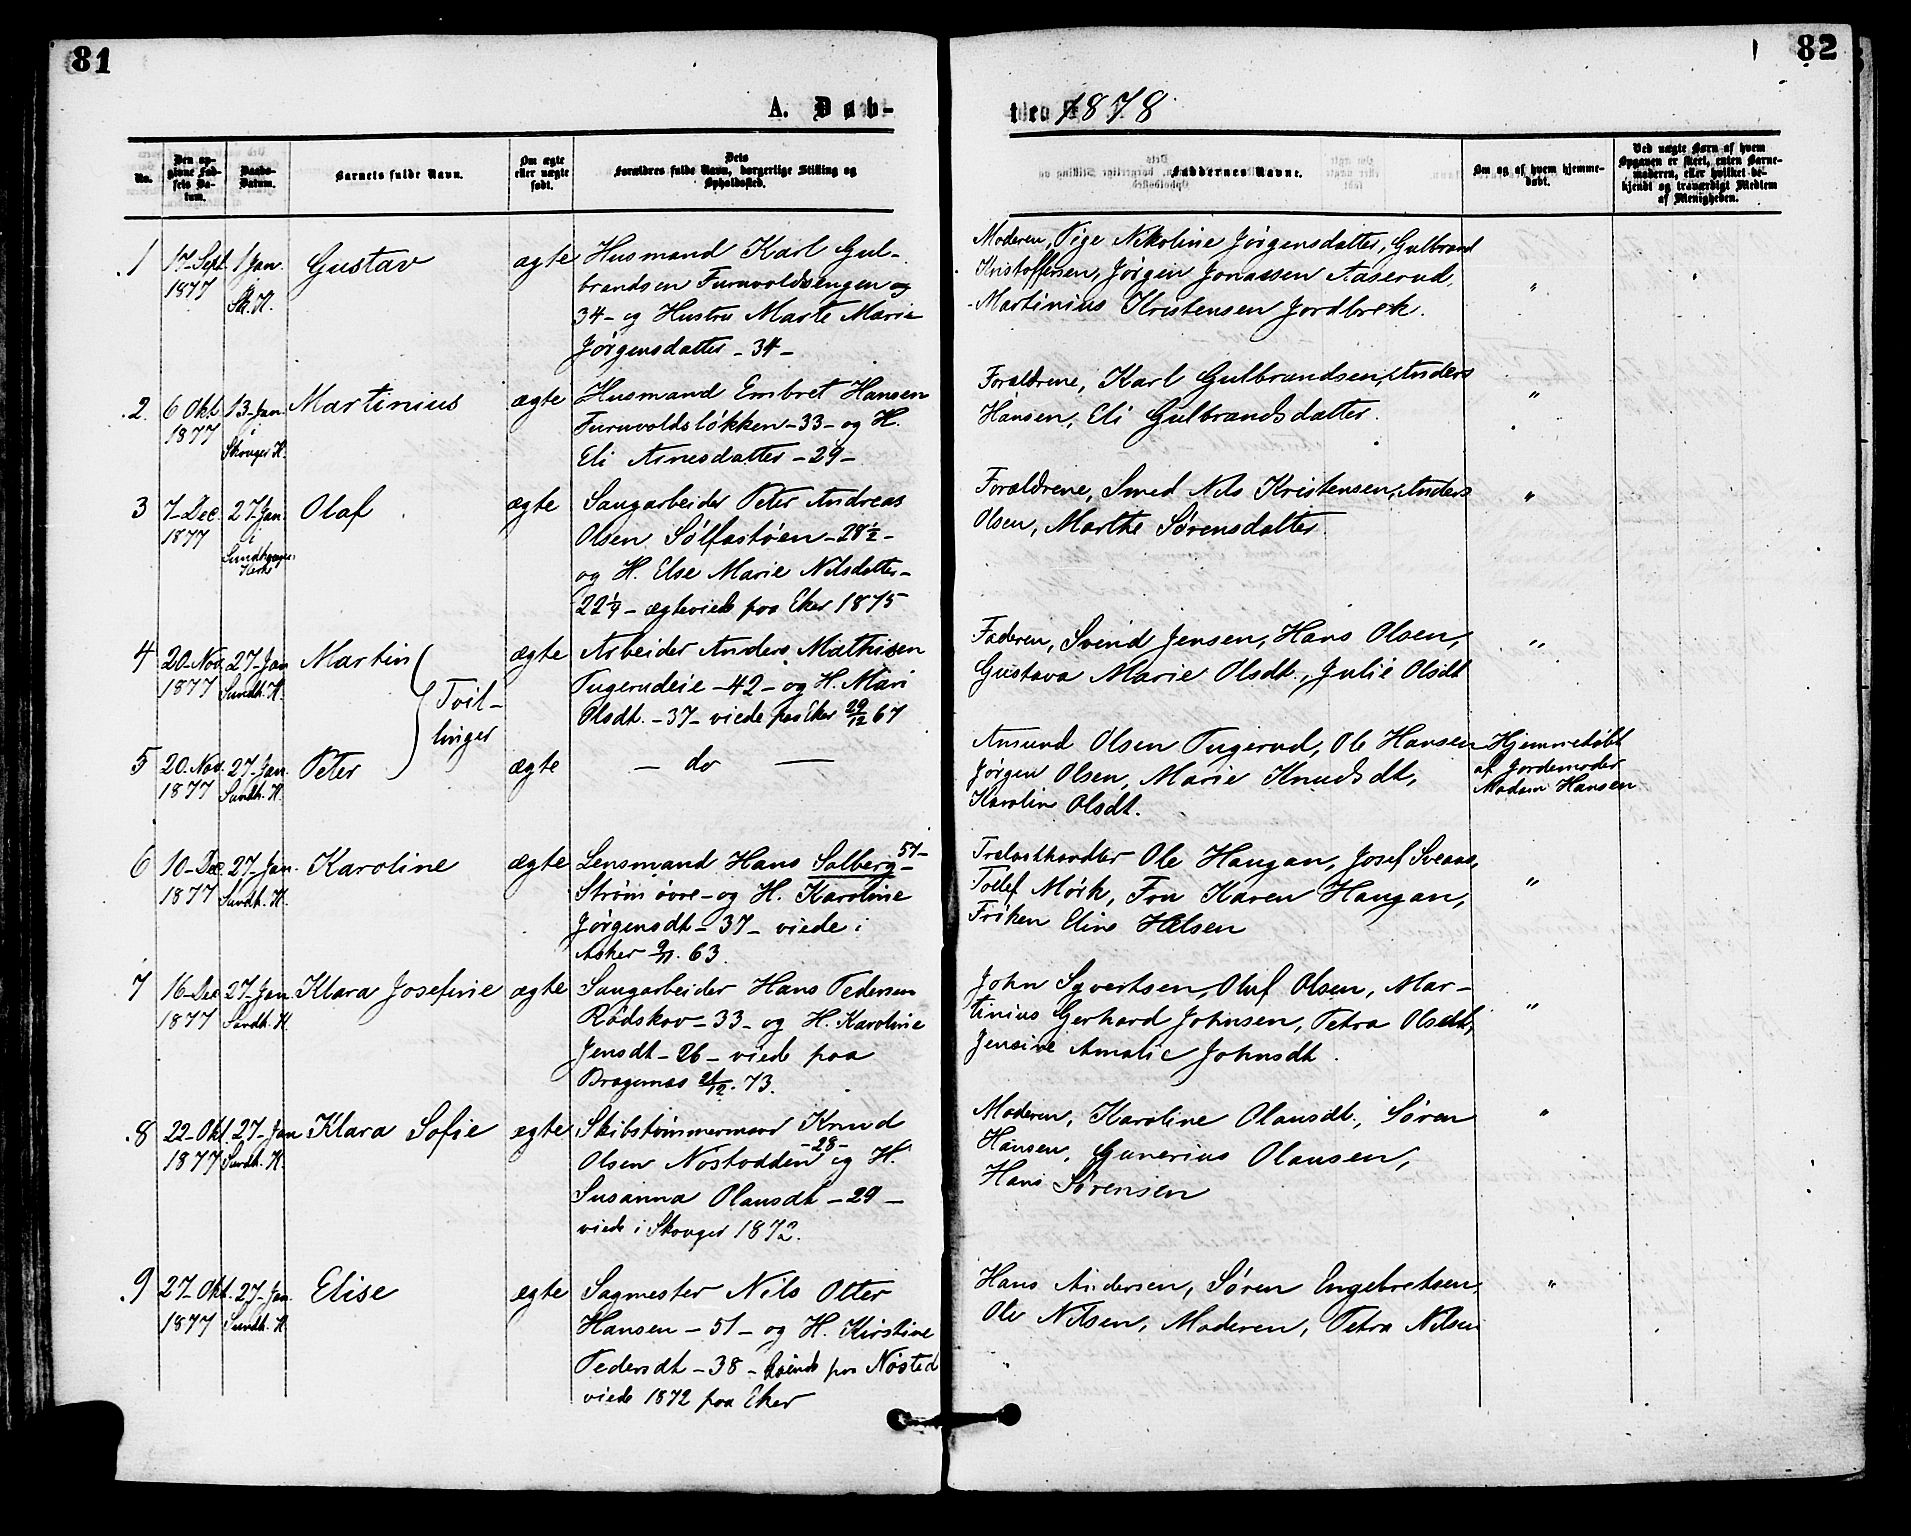 81
82
A. Døb-
te. 1878.
No.
Den op-
givne Fød-
sels Da-
tum.
Daabs-
Datum.
Barnets fulde Navn.
Om ægte
eller uægte
født.
Dets
Forældres fulde Navn, borgerlige Stilling og
Opholdssted.
Faddernes Navne.
Om og af hvem hjemme-
døbt.
Ved uægte Børn af hvem
Opgaven er skeet, enten Barne-
moderen, eller hvilket be-
kjendt og troværdigt Medlem
af Menigheden.
1 17-Sept 1877 1 Jan. Sk. K. Gustav ægte
Husmand Karl Gul-
brandsen Furuvoldsengen og
34- og Hustru Marte Marie
Jørgensdatter -34-
Moderen, Pige Nikoline Jørgensdatter, Gulbrand
Kristoffersen, Jørgen Jonassen Aaserud,
Martinius Kristensen Jordbrek.
"
2. 6 Okt 1877 13-Jan. i Skouger K. Martinius ægte
Husmand Embret Hansen
Furuvoldsløkken -33- og H.
Eli Arnesdatter -29-
Forældrene, Karl Gulbrandsen, Anders
Hansen, Eli Gulbrandsdatter.
"
3 7-Dec. 1877 27-Jan. i Sundhaugen Kirk Olaf ægte
Saugarbeider Peter Andreas
Olsen Sølfastøen -28½-
og H. Else Marie Nilsdatter-
22¼- ægteviede paa Eker 1875
Forældrene, Smed Nils Kristensen, Anders
Olsen, Marthe Sørensdatter.
"
4 20-Nov. 1877 27-Jan Sundh. K. Martin ægte
Tvil-
linger
Arbeider Anders Mathisen
Tugerudeie -42- og H. Mari
Olsdt. -37- viede paa Eker 29/12 67
Faderen, Svend Jensen, Hans Olsen,
Gustava Marie Olsdt., Julie Olsdt
"
5 20-Nov. 1877 27-Jan. Sundh. K. Peter ægte
- do -
Amund Olsen Tugerud, Ole Hansen
Jørgen Olsen, Marie Knudsdt,
Karoline Olsdt.
Hjemmedøbt
af Jordemoder
Madam Hansen
6 10-Dec 1877 27-Jan. Sundh. K. Karoline ægte
Lensmand Hans Solberg -51-
Strøm øvre - og H. Karoline
Jørgensdt -37- viede i
Asker 9/11. 63.
Trelasthandler Ole Haugan, Josef Sveaas,
Tollef Mørk, Fru Karen Haugan,
Frøken Eline Hælsen
"
7 16-Dec 1877 27-Jan. Sundh. K Klara Josefine ægte
Saugarbeider Hans Pedersen
Rødskov -33- og H. Karoline
Jensdt -26- viede paa
Bragernæs 21/12. 73.
John Syvertsen, Oluf Olsen, Mar-
tinius Gerhard Johnsen, Petra Olsdt,
Jensine Amalie Johnsdt.
"
8 22-Okt. 1877 27-Jan Sundh. K. Klara Sofie ægte
Skibstømmermand Knud
Olsen Nøstodden -28- og H.
Susanna Olausdt -29-
viede i Skouger 1872.
Moderen, Karoline Olausdt., Søren
Hansen, Gunerius Olausen,
Hans Sørensen
"
9 27-Okt. 1877 27-Jan. Sundh. K Elise ægte
Sagmester Nils Otter
Hansen -51- og H. Kirstine
Pedersdt -38- paa Nøsted
viede 1872 paa Eker
Hans Andersen, Søren Engebretsen,
Ole Nilsen, Moderen, Petra Nilsen
"